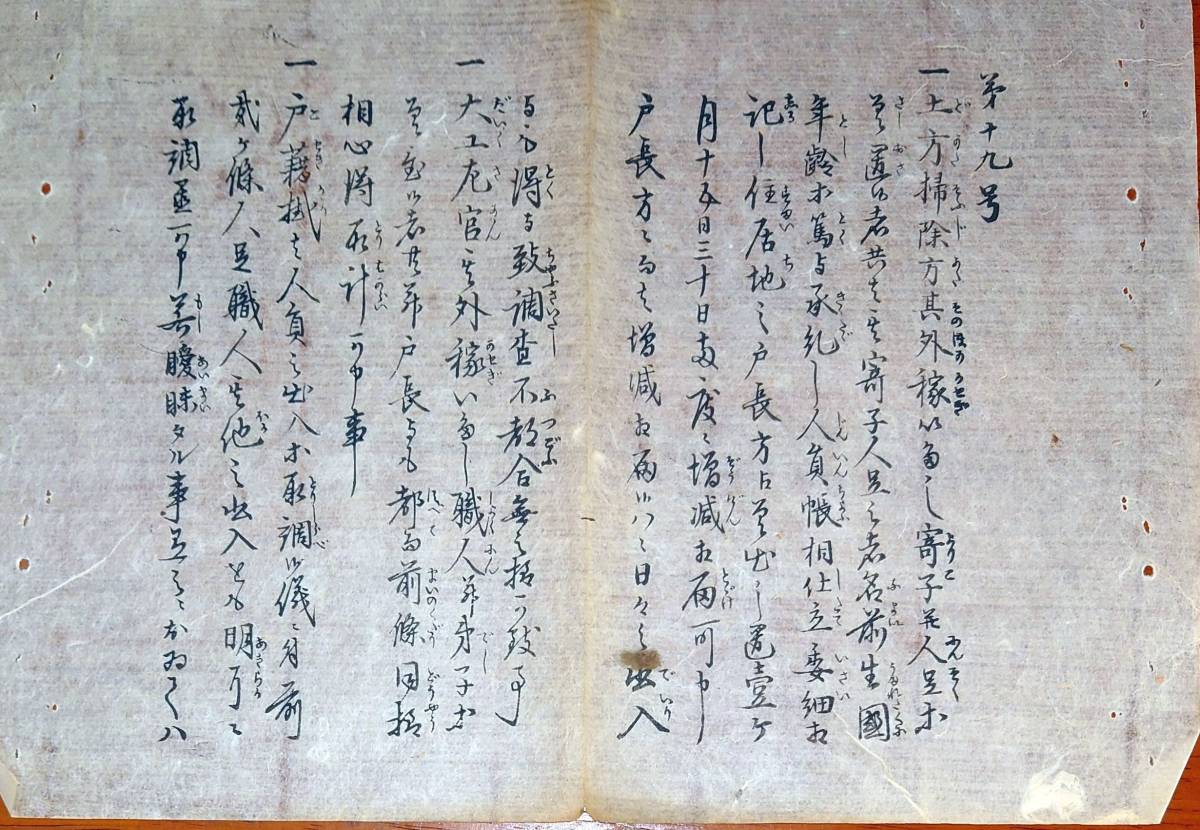 第十九号
一土方掃除方其外稼いたし寄子并人足等
差置候者共は其寄子人足之者名前生国
年齢等篤与承糺し人員帳相仕立委細相
記し住居地之戸長方江差出し置壹ケ
月十五日三十日両度ニ増減相届可申
戸長方ニ而は増減相届候ハヽ日々之出入
与得与致調査不都合無之様可致事
一大工左官其外稼いたし職人并弟子等
差置候者共并戸長ニも都而前條同様
相心得取計可申事
一戸籍掛は人員之出入等取調候儀ニ付前
貳ケ條人足職人其他之出入とも明可ニ
取調置可申若曖昧タル事有之ニおゐてハ